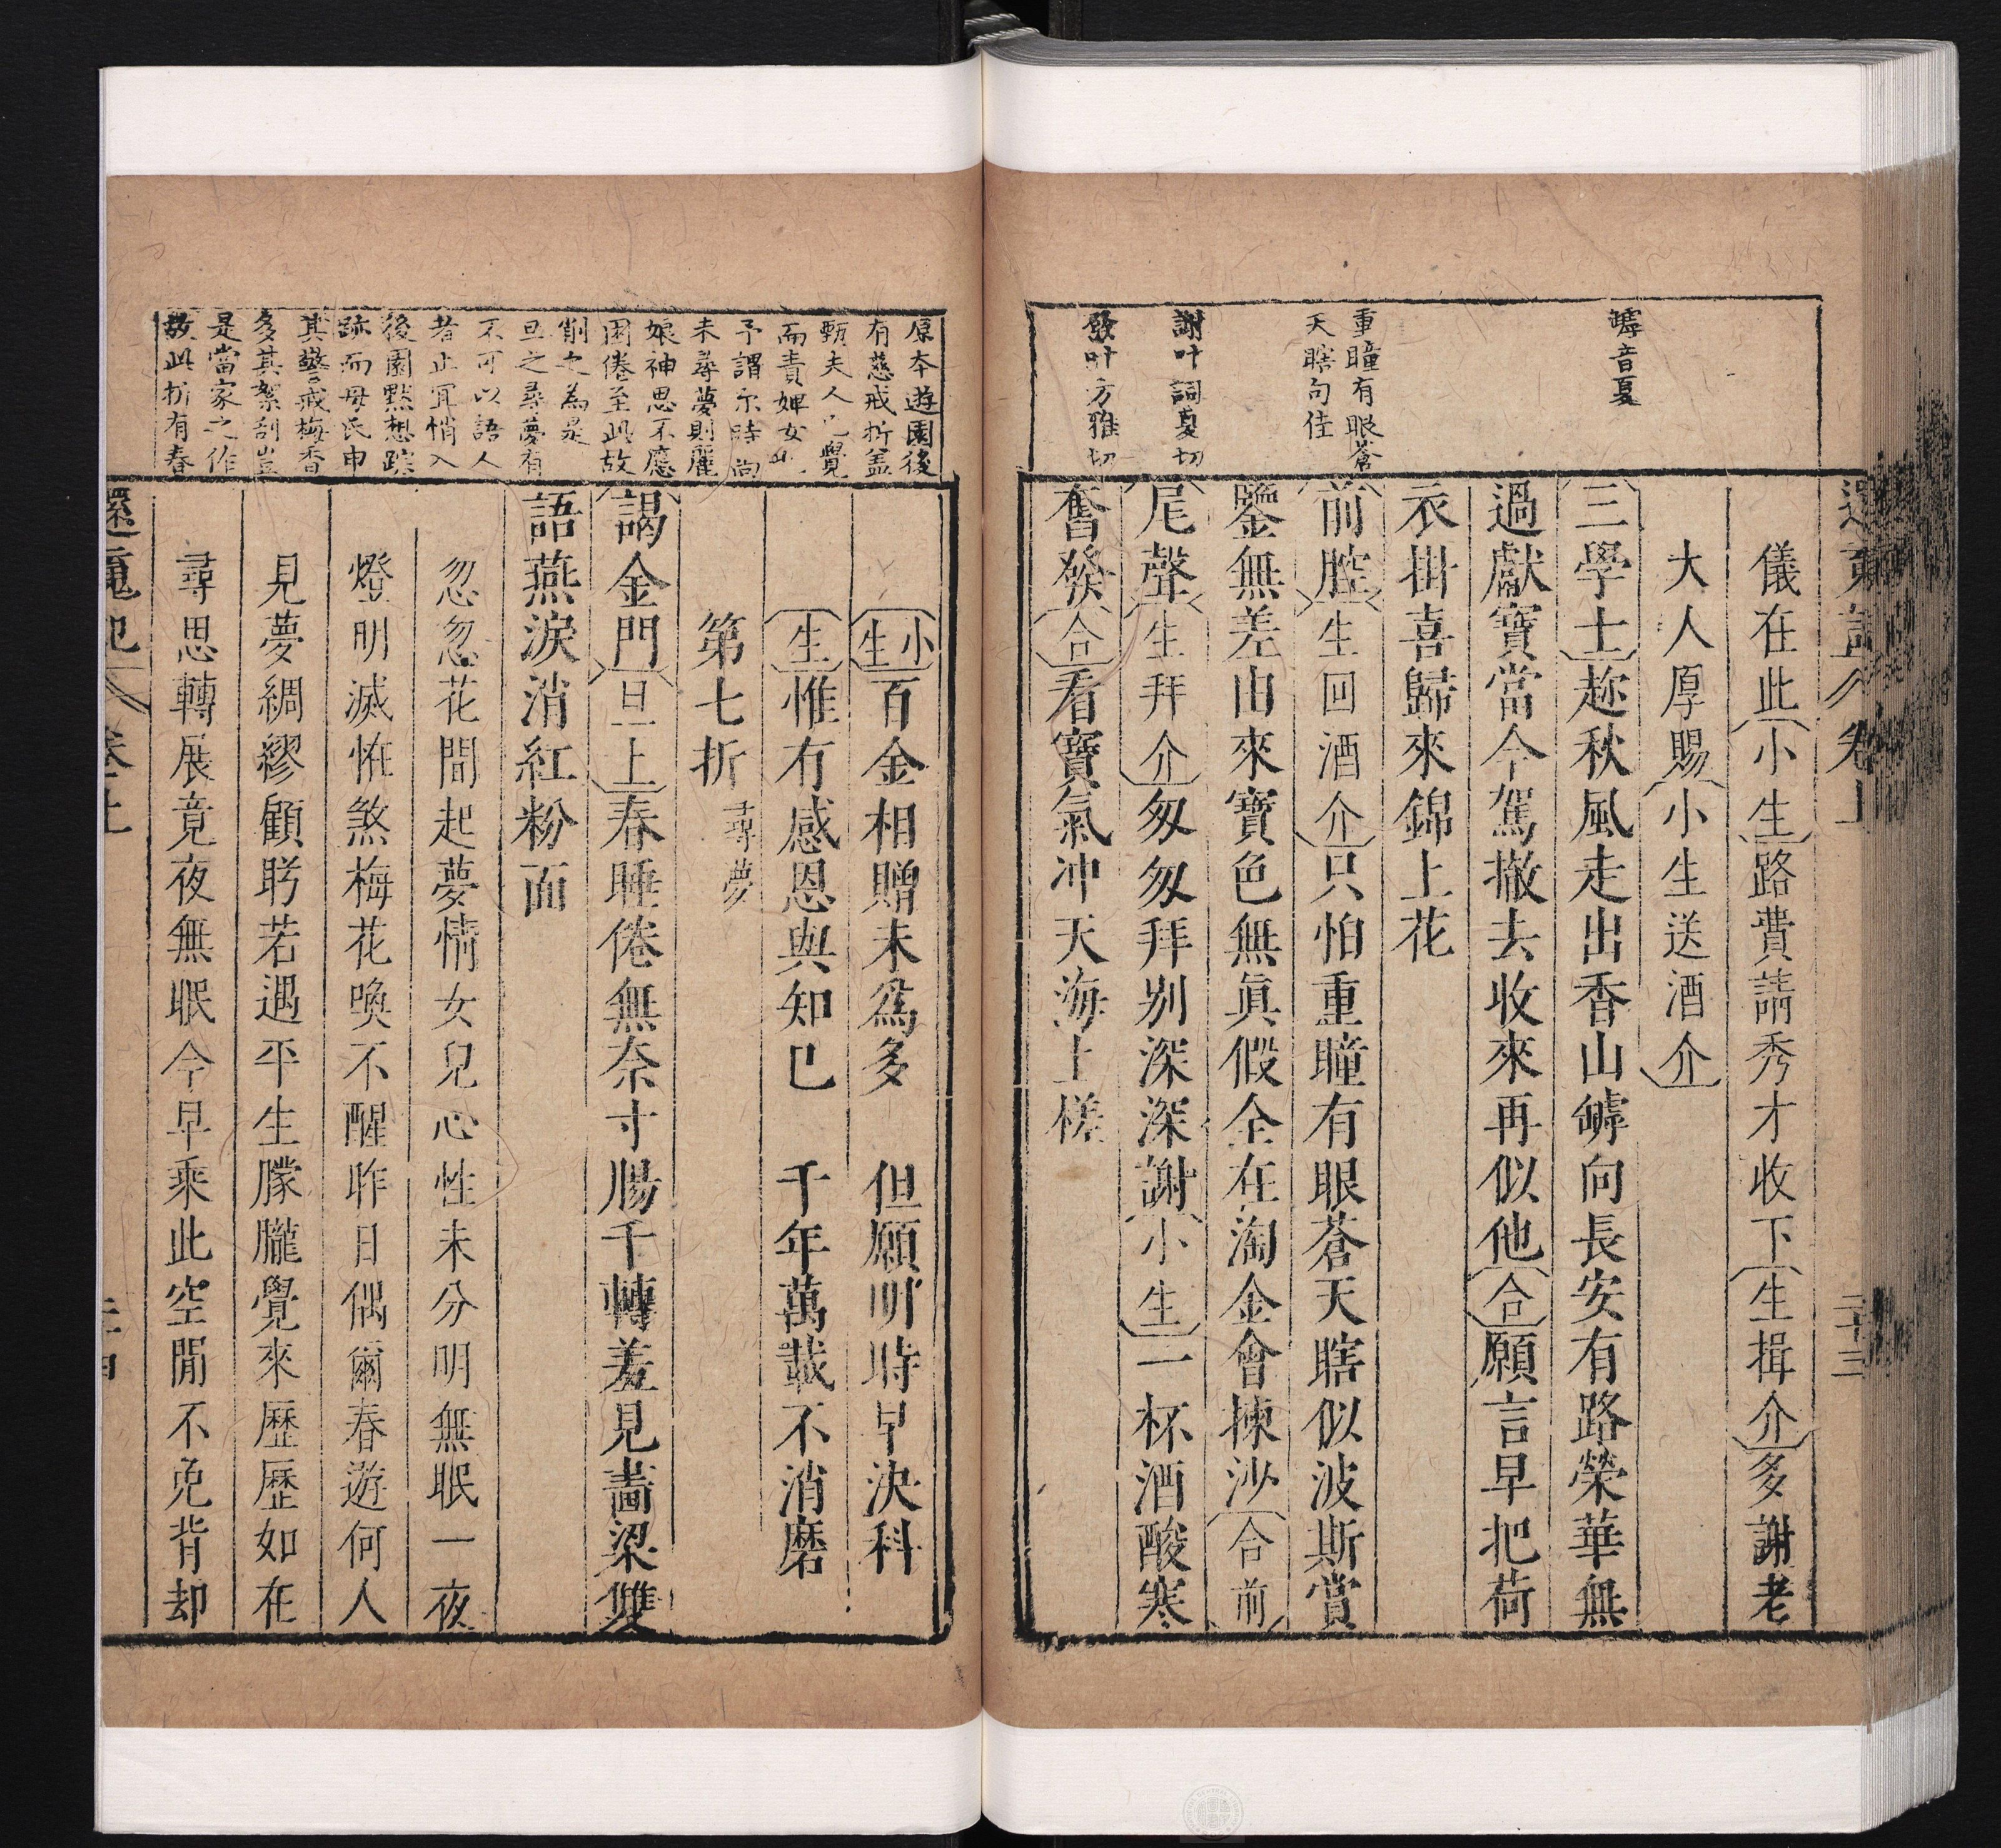 還魂記
卷上
二十三
罅音夏
重瞳有眼蒼
天瞎句佳
謝叶詞夏切
發叶方雅切
儀在此小生路費請秀才收下生揖介多謝老
大人厚賜小生送酒介
三學士趂秋風走出香山罅向長安有路榮華無
過獻寶當今駕撤去收來再似他合願言早把荷
衣掛喜歸來錦上花
前腔生回酒介只怕重瞳有眼蒼天瞎似波斯賞
鑒無差由來寶色無眞假全在淘金會揀沙合前
尾聲生拜介匆匆拜別深深謝小生一杯酒酸寒
奮發合看寶氣冲天海上槎
原本遊園後
有慈戒折葢
甄夫人已覺
而責婢女也
予謂尔時尚
未尋夢則麗
娘神思不應
困倦至此故
削之為是
旦之尋夢有
不可以語人
者止宜悄入
後園默想踪
跡而母氏申
其警戒梅香
多其絮刮豈
是當家之作
故此折有春
小生百金相贈未爲多　但願明時早決科
生惟有感恩與知已　千年萬載不消磨
第七折　尋夢
謁金門旦上春睡倦無奈寸腸千轉羞見畵梁雙
語燕淚消紅粉面
忽忽花間起夢情女兒心性未分明無眠一夜
燈明滅恠煞梅花喚不醒昨日偶爾春遊何人
見夢綢繆顧盻若遇平生朦朧覺來歷歷如在
尋思轉展竟夜無眠今早乘此空閒不免背却
還魂記
卷上
二十四